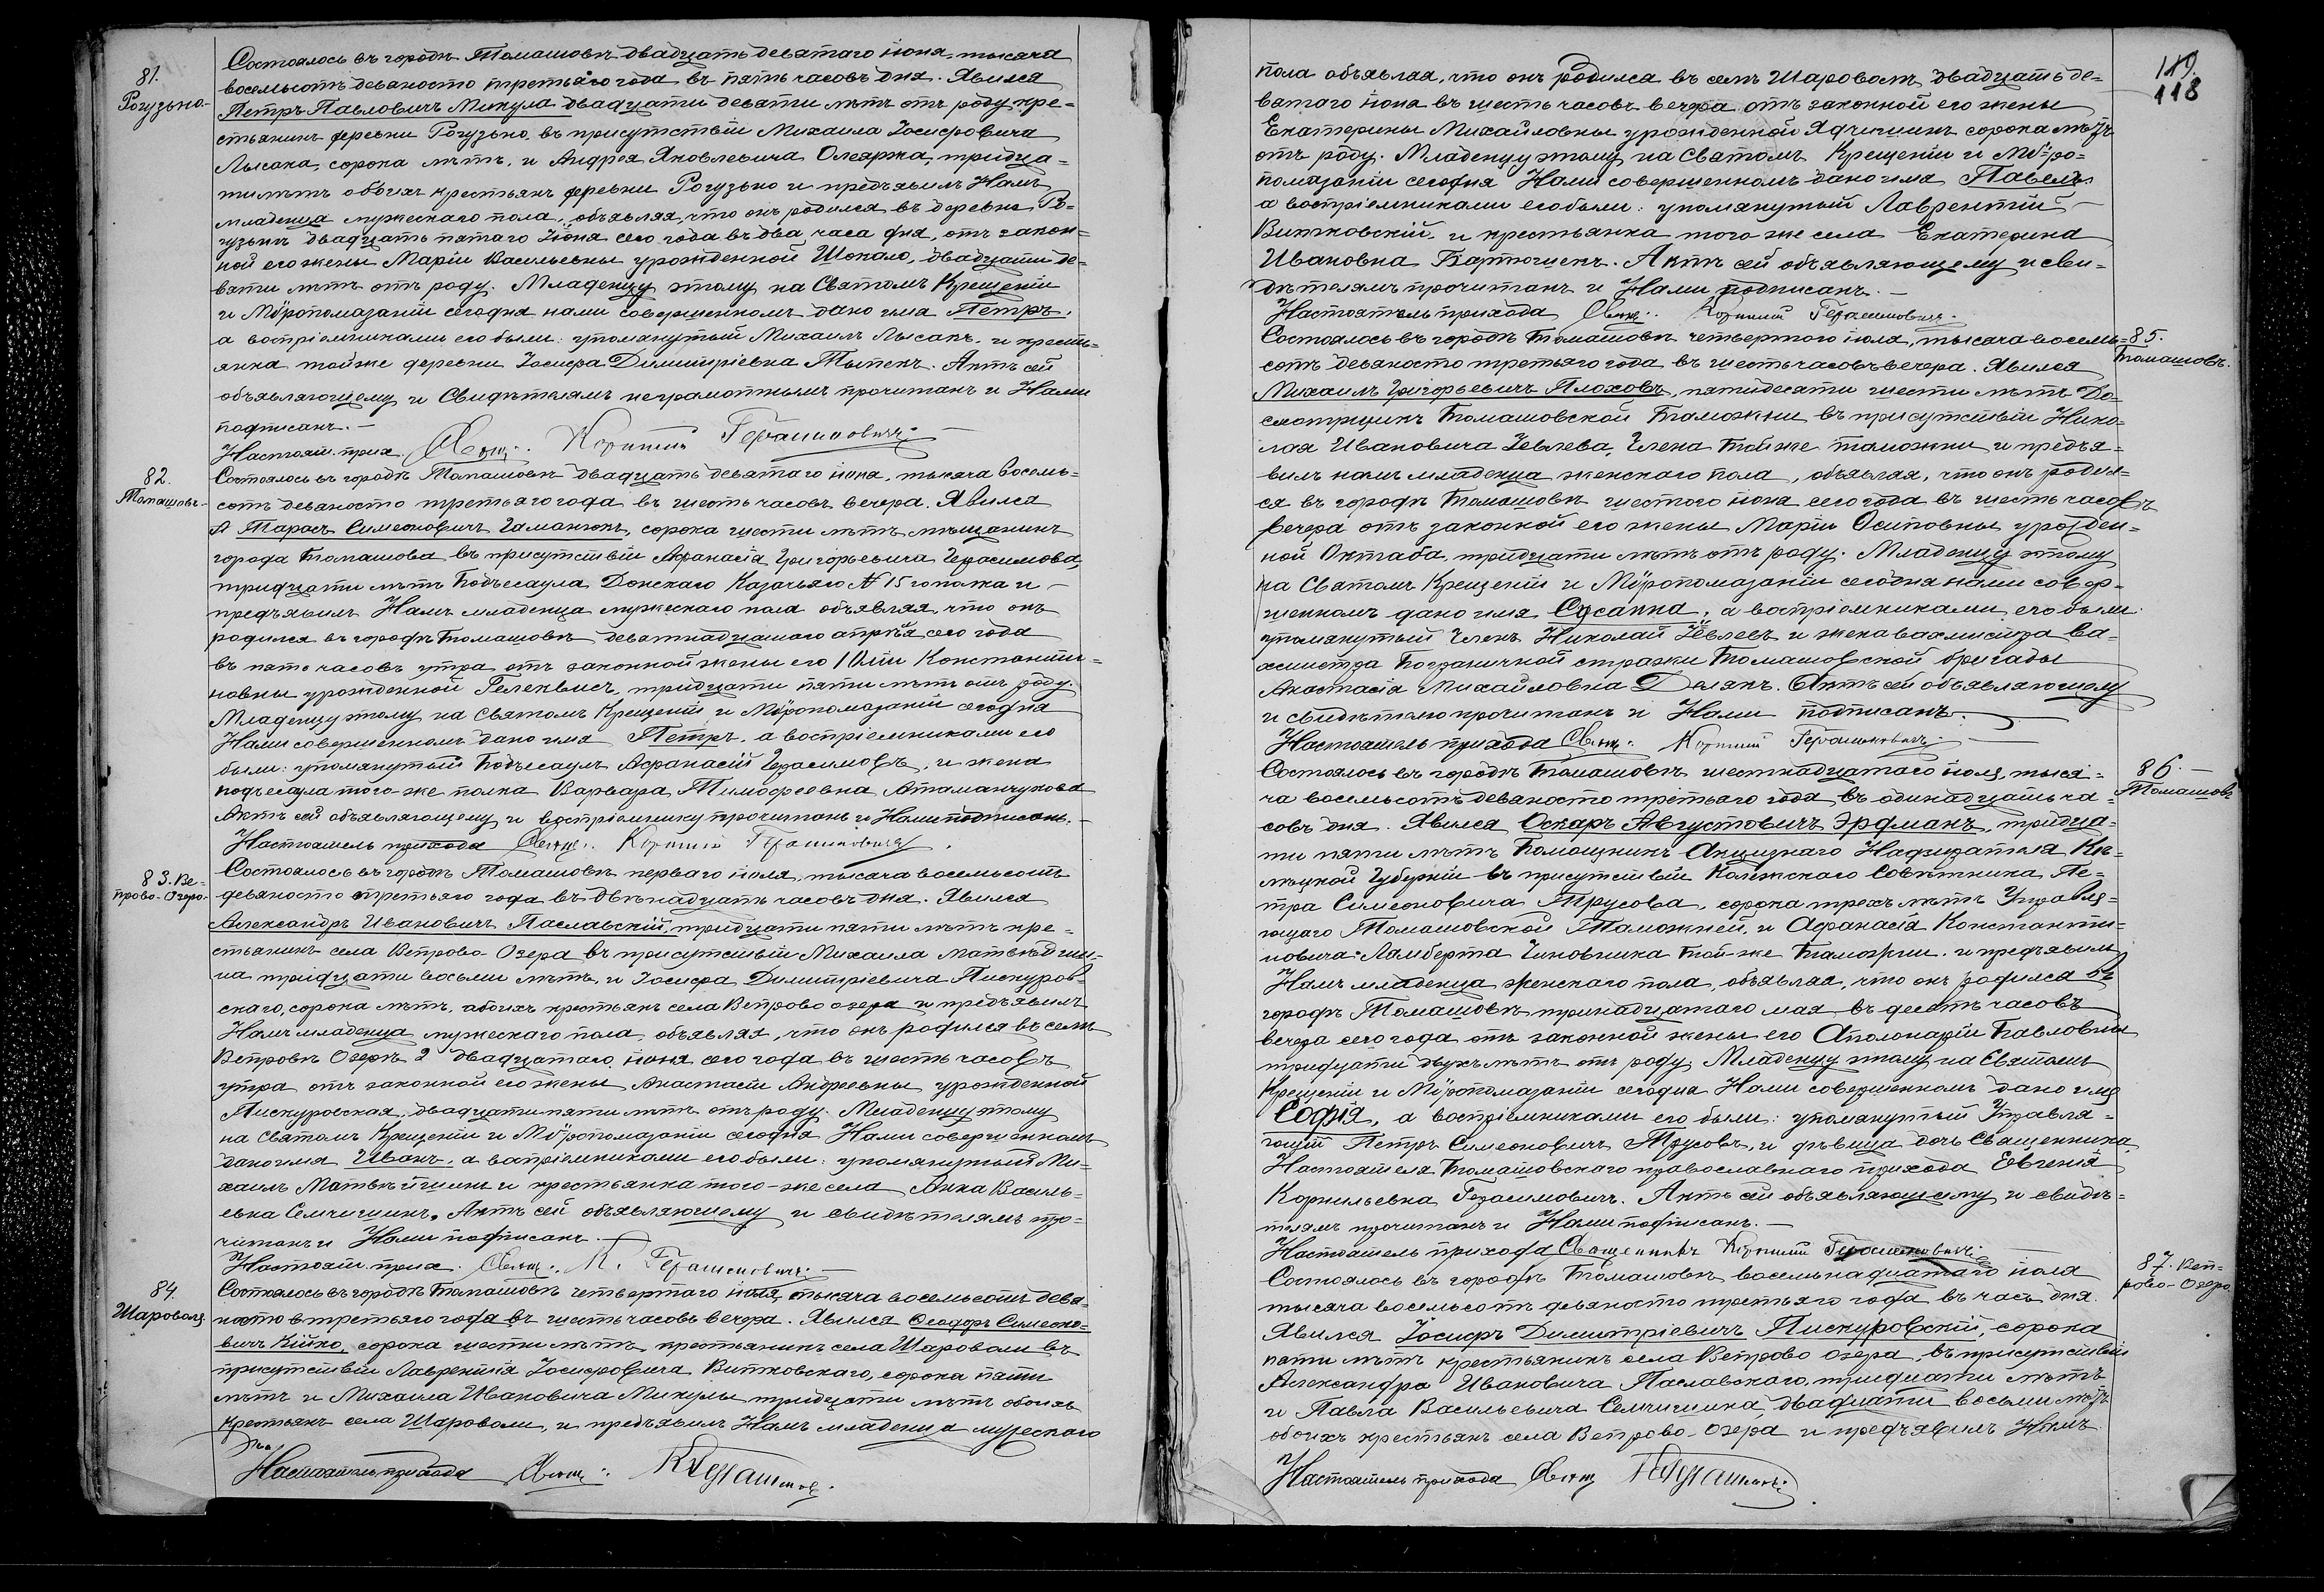 81.
Рогузьно.
Состоялось въ городѣ Томашовѣ двадцать девятаго іюня, тысяча
восемьсотъ девяносто третьяго года въ пять часовъ дня. Явился
Петръ Павловичъ Микула двадцати девяти лѣтъ отъ роду кре-
стьянинъ деревни Рогузьно, въ присутствіи Михаила Іосифовича
Лысака, сорока лѣтъ, и Андрея Яковлевича Олеярка, тридца-
ти лѣтъ обоихъ крестьянъ деревни Рогузьно и предъявилъ Намъ
младенца мужескаго пола, объявляя, что онъ родился въ деревне Ро-
гузьнѣ двадцать пятаго Іюня сего года въ два часа дня, отъ закон-
ной его жены Маріи Васильевны урожденной Шокало, двадцати де-
вяти лѣтъ отъ роду. Младенцу этому на Святомъ Крещеніи
и Мѵропомазаніи сегодня нами совершенномъ дано имя Петръ,
а воспріемниками его были: упомянутый Михаилъ Лысакъ и кресть-
янка тойже деревни Іосифа Димитріевна Тытенъ. Актъ сей
объявляющему и Свидѣтелямъ неграмотнымъ прочитанъ и Нами
подписанъ. —
Настоят. прих. Свящ: Корнилій Герасимовичъ. —
82.
Томашовъ.
Состоялось въ городѣ Томашовѣ двадцать девятаго іюня, тысяча восемь-
сотъ девяносто третьяго года въ шесть часовъ вечера. Явился
Тарасъ Симеоновичъ Гаманюкъ, сорока шести лѣтъ мѣщанинъ
города Томашова въ присутствіи Афанасія Григорьевича Герасимова
тридцати лѣтъ Подъесаула Донскаго Казачьяго № 15 го полка и
предъявилъ Намъ младенца мужескаго пола объявляя, что онъ
родился въ городѣ Томашовѣ девятнадцатаго апрѣля сего года
въ пять часовъ утра отъ законной жены его Юліи Константи-
новны урожденной Гелекевисъ, тридцати пяти лѣтъ отъ роду.
Младенцу этому на Святомъ Крещеніи и Мѵропомазаніи сегодня
Нами совершенномъ дано имя Петръ, а воспріемниками его
были: упомянутый Подъесаулъ Афанасій Герасимовъ, и жена
подъесаула того-же полка Варвара Тимофеевна Атаманчукова
Актъ сей объявляющему и воспріемнику прочитанъ и Нами подписанъ. —
Настоятель прихода Свящ: Корнилій Герасимовичъ.
83. Ве-
прово-Озеро-
Состоялось въ городѣ Томашовѣ перваго іюля, тысяча восемьсотъ
девяносто третьяго года въ двѣнадцать часовъ дня. Явился
Александръ Ивановичъ Паславскій, тридцати пяти лѣтъ кре-
стьянинъ села Вепрово-Озера въ присутствіи Михаила Матвѣйши-
на тридцати восьми лѣтъ, и Іосифа Димитріевича Пискуров-
скаго, сорока лѣтъ, обоихъ крестьянъ села Вепрово озера и предъявилъ
Намъ младенца мужескаго пола, объявляя, что онъ родился въ селѣ
Вепровѣ Озерѣ двадцатаго іюня сего года въ шесть часовъ
утра отъ законной его жены Анастасіи Андреевны урожденной
Пискуровская, двадцати пяти лѣтъ отъ роду. Младенцу этому
на Святомъ Крещеніи и Мѵропомазаніи сегодня Нами совершенномъ
дано имя Иванъ, а вапріемниками его были: упомянутый Ми-
хаилъ Матвѣйшинъ и крестьянка того-же села Анна Василь-
евна Семчишинъ. Актъ сей объявляющему и свидѣтелямъ про-
читанъ и Нами подписанъ. —
Настоят. прих. Свящ: К. Герасимовичъ. —
84.
Шароволя
Состоялось въ городѣ Томашовѣ четвертаго іюля, тысяча восемьсотъ девя-
носто втретьяго года въ шесть часовъ вечера. Явился Феодоръ Симеоно-
вичъ Кійко, сорока шести лѣтъ крестьянинъ села Шароволи въ
присутствіи Лаврентія Іосифовича Витковскаго, сорока пяти
лѣтъ и Михаила Ивановича Микулы тридцати лѣтъ обоихъ
крестьянъ села Шароволи, и предъявилъ Намъ младенца мужескаго
Настоятель прихода Свящ: К Герасимов.
119.
118
пола объявляя, что онъ родился въ селѣ Шароволѣ двадцать де-
вятаго іюня въ шесть часовъ вечера отъ законной его жены
Екатерины Михайловны урожденной Ядчишинъ сорока лѣтъ
отъ роду. Младенцу этому на Святомъ Крещеніи и Мѵро-
помазаніи сегодня Нами совершенномъ дано имя Павелъ
а воспріемниками его были: упомянутый Лаврентій
Витковскій, и крестьянка того же села Екатерина
Ивановна Бартошенъ. Актъ сей объявляющему и сви-
дѣтелямъ прочитанъ и Нами подписанъ. —
Настоятель прихода Свящ: Корнилій Герасимовичъ.
85.
Томашовъ.
Состоялось въ городѣ Томашовѣ четвертаго іюля, тысяча восемь-
сотъ девяносто третьяго года въ шесть часовъ вечера. Явился
Михаилъ Григорьевичъ Плоховъ, пятидесяти шести лѣтъ До-
смотрщикъ Томашовской Таможни, въ присутствіи Нико-
лая Ивановича Іевлева, Члена тойже таможни и предъя-
вилъ намъ младенца женскаго пола, объявляя, что онъ родил-
ся въ городѣ Томашовѣ шестого іюня сего года въ шесть часовъ
вечера отъ законной его жены Маріи Осиповны урожден-
ной Октаба, тридцати лѣтъ отъ роду. Младенцу этому
на Святомъ Крещеніи и Мѵропомазаніи сегодня нами совер-
шенномъ дано имя Сусанна, а воспріемниками его были
упомянутый Членъ Николай Іевлевъ и жена вахмистра ва-
хмистра Пограничной стражи Томашовской бригады
Анастасія Михайловна Делякъ. Актъ сей объявляющему
и свидѣтелю прочитанъ и Нами подписанъ. —
Настоятель прихода Свящ: Корнилій Герасимовичъ. —
86. —
Томашовъ
Состоялось въ городѣ Томашовѣ шестнадцатаго іюля, тыся-
ча восемьсотъ девяносто третьяго года въ одинадцать ча-
совъ дня. Явился Оскаръ Августовичъ Эрдманъ, тридца-
ти пяти лѣтъ Помощникъ Акцизнаго Надзирателя Кѣ-
лецкой Губерніи въ присутствіи Колежскаго Совѣтника Пе-
тра Симеоновича Трусова, сорока трехъ лѣтъ Управля-
ющаго Томашовской Таможней, и Афанасія Константи-
новича Ламберта Чиновника той-же Таможни. и предъявилъ
Намъ младенца женскаго пола, объявляя, что онъ родился въ
городѣ Томашовѣ тринадцатаго мая въ десять часовъ
вечера сего года отъ законной жены его Аполонаріи Павловны
тридцати двухъ лѣтъ отъ роду. Младенцу этому на Святомъ
Крещеніи и Мѵропомазаніи сегодня Нами совершенномъ дано имя
София, а воспріемниками его были: упомянутый Управля-
ющій Петръ Симеоновичъ Трусовъ, и дѣвица дочь Священника,
Настоятеля Томашовскаго православнаго прихода Евгенія
Корнильевна Герасимовичъ. Актъ сей объявляющему и свидѣ-
телямъ прочитанъ и Нами подписанъ. —
Настоятель прихода Священникъ Корнилій Герасимовичъ.
87. Веп-
рово-Озеро
Состоялось въ городѣ Томашовѣ восемьнадцатаго іюля
тысяча восемьсотъ девяносто третьяго года въ часъ дня.
Явился Іосифъ Димитріевичъ Пискуровскій, сорока
пяти лѣтъ крестьянинъ села Вепрово Озера, въ присутствіи
Александра Ивановича Паславскаго, тридцати лѣтъ
и Павла Васильевича Семчишина, двадцати восьми лѣтъ
обоихъ крестьянъ села Вепрово-Озера и предъявилъ Намъ
Настоятель прихода Свящ К Герасимовичъ